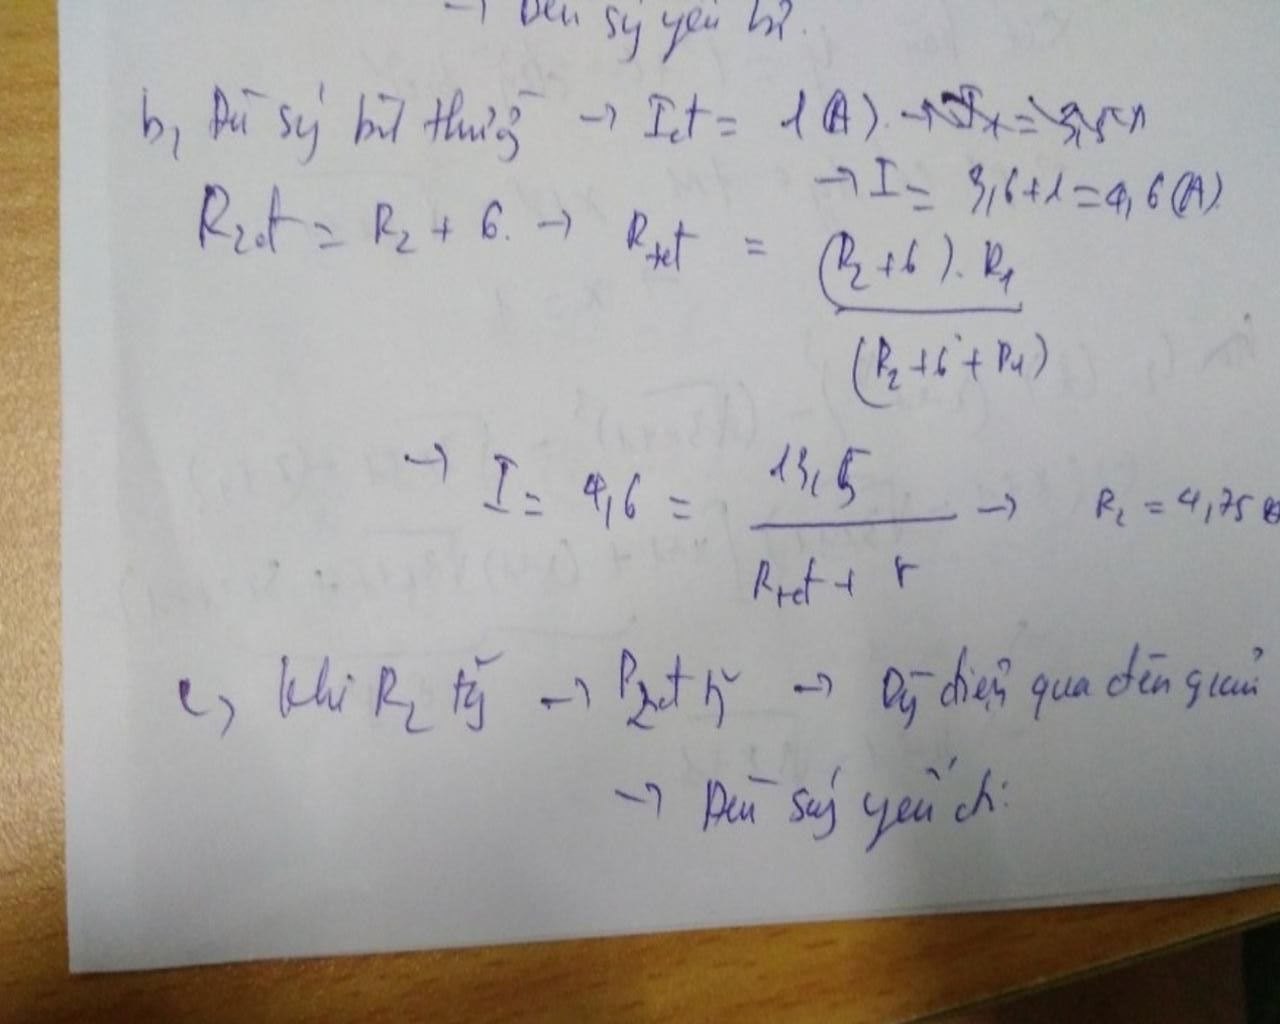 → Đèn sáng yếu hơn.
b, Đèn sáng bình thường → Iđ = 1(A).
→ I = 3,6+1=4,6(A)
R₂đ = R₂ + 6. → Rtđ = (R₂+6).R₁ / (R₂+6+R₁)
→ I = 4,6 = 13,5 / Rtđ + r → R₂ = 4,75
c, Khi R₂ tăng → R₂đ tăng → Dòng điện qua đèn giảm
→ Đèn sáng yếu đi.